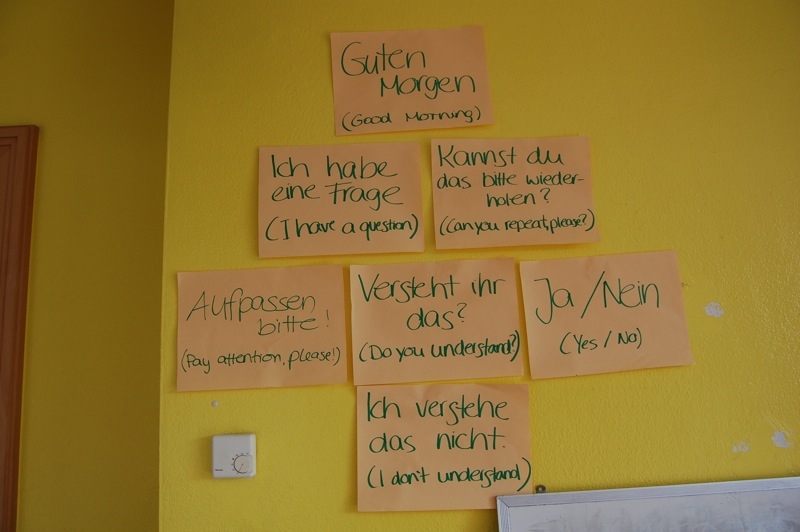 Guten
Morgen
(Good Morning)
Ich habe
eine Frage
(I have a question)
Kannst du
das bitte wieder-
holen?
(Can you repeat, please?)
Aufpassen
bitte!
(Pay attention, please!)
Versteht ihr
das?
(Do you understand?)
Ja / Nein
(Yes / No)
Ich verstehe
das nicht.
(I don't understand)